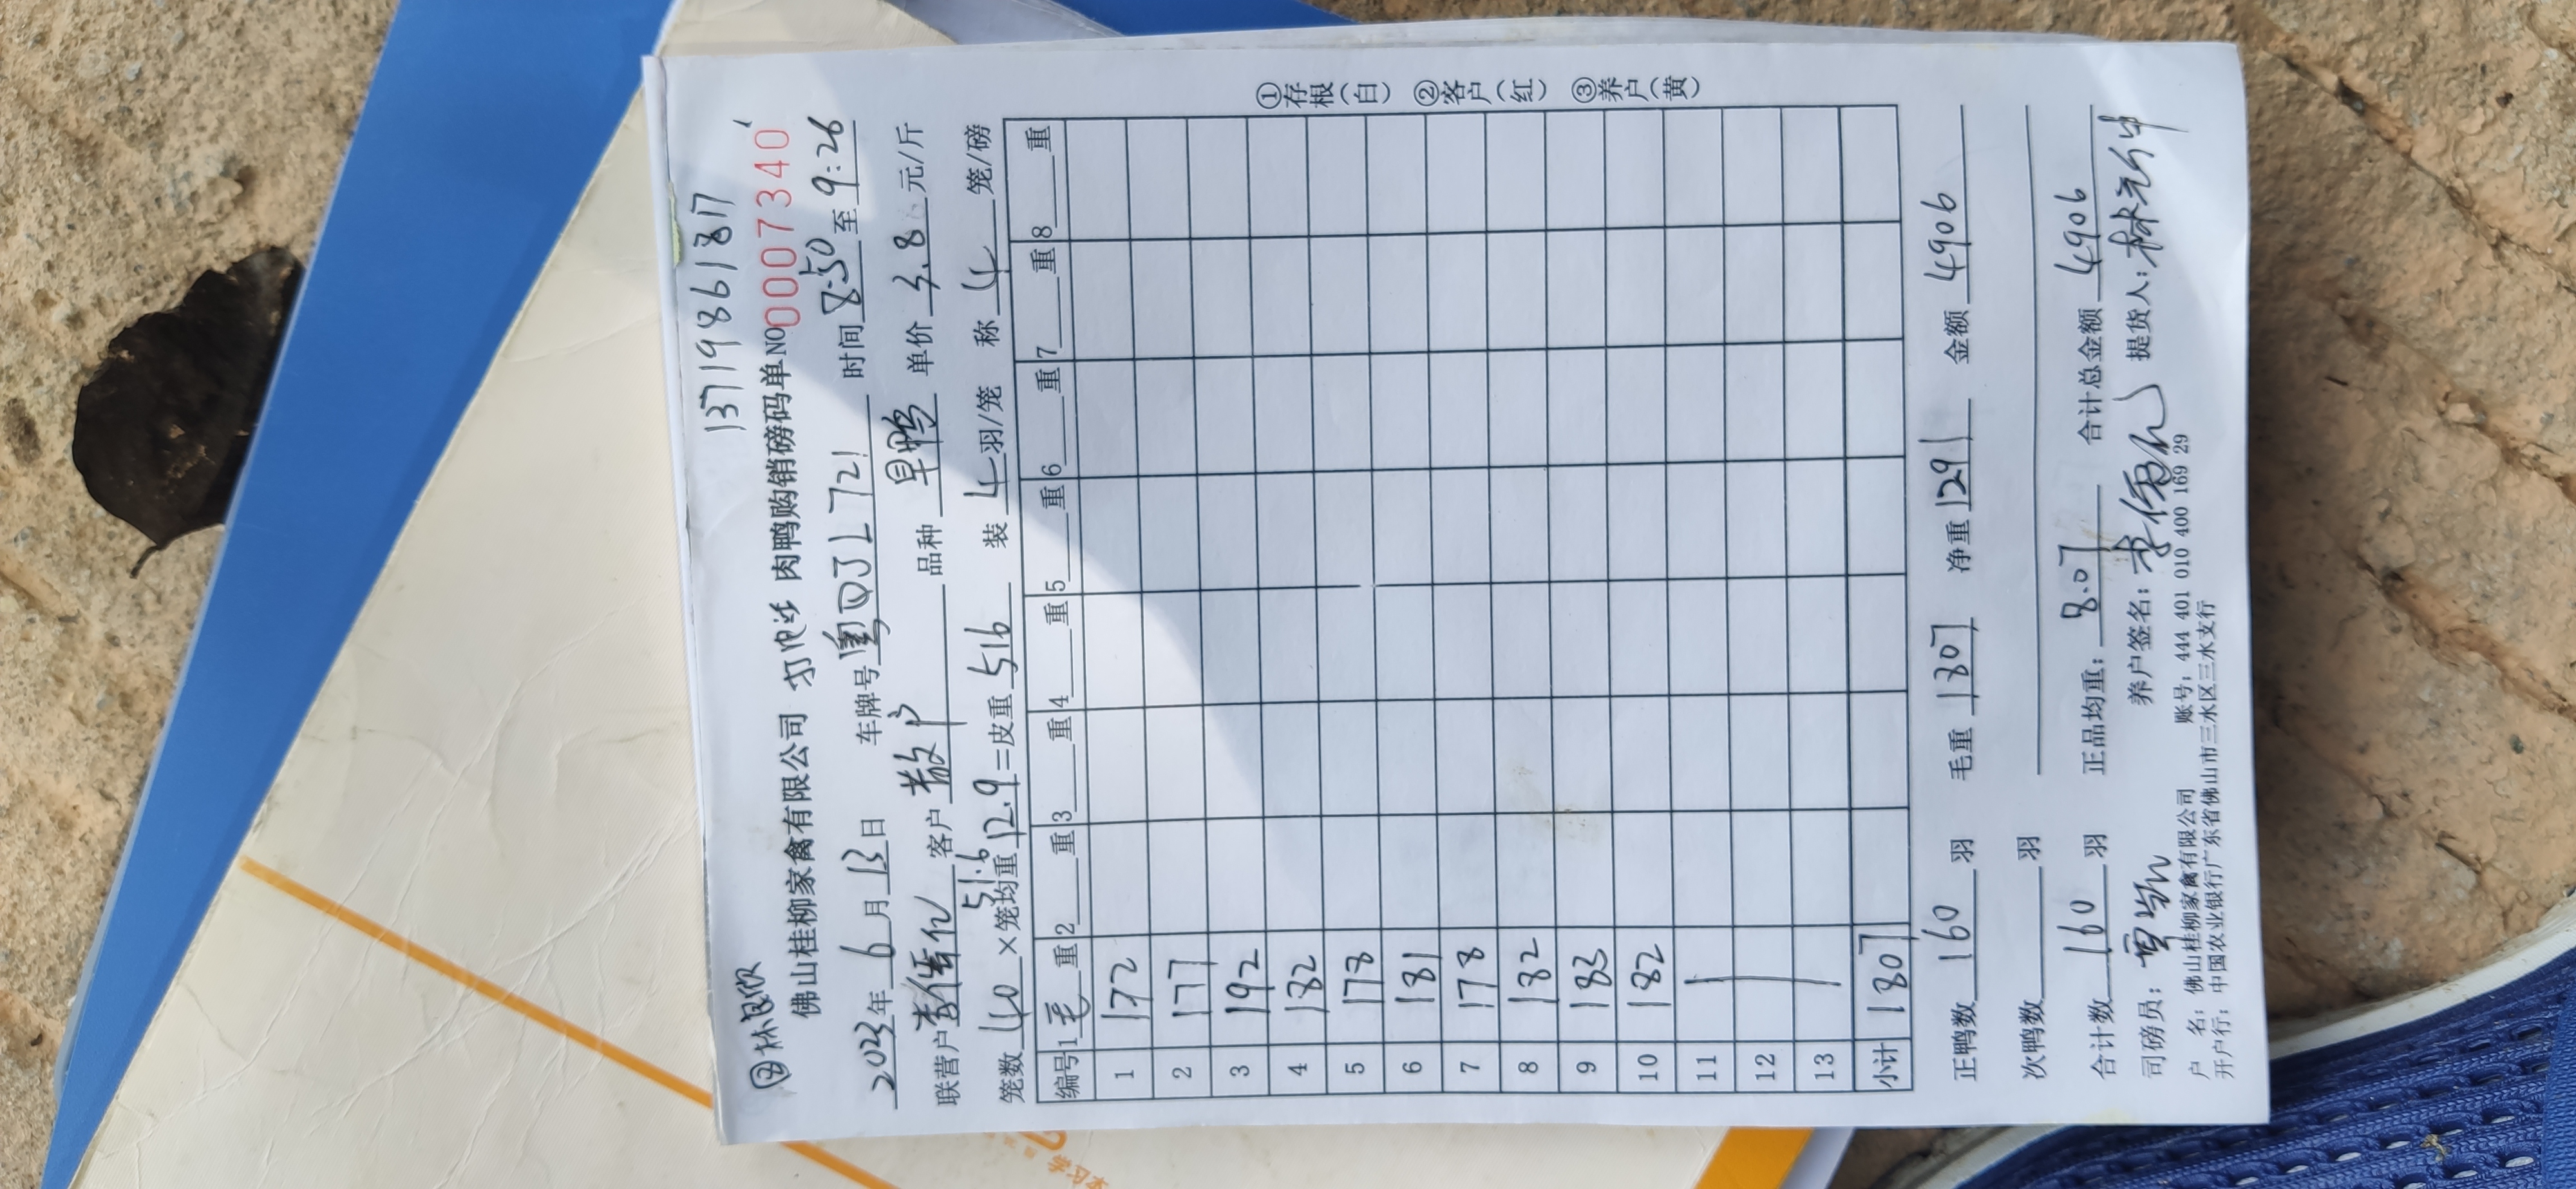 13719861817
佛山桂柳家禽有限公司 肉鸭购销磅码单NO 00007340
2023年6月13日 车牌号粤QJL721 时间8:50至9:26
联营户 客户散户 品种旱鸭 单价3.8元/斤
51.6
笼数40×笼均重12.9=皮重516 装4羽/笼 称4笼/磅
编号 1毛重 2重 3重 4重 5重 6重 7重 8重
1 172
2 177
3 192
4 182
5 178
6 181
7 178
8 182
9 183
10 182
11
12
13
小计 1807
①存根(白) ②客户(红) ③养户(黄)
正鸭数160羽 毛重1807 净重1291 金额4906
次鸭数 羽
合计数160羽 正品均重:8.07 合计总金额4906
司磅员: 养户签名: 提货人:
户 名: 佛山桂柳家禽有限公司 账号: 444 401 010 400 169 29
开户行: 中国农业银行广东省佛山市三水区三水支行